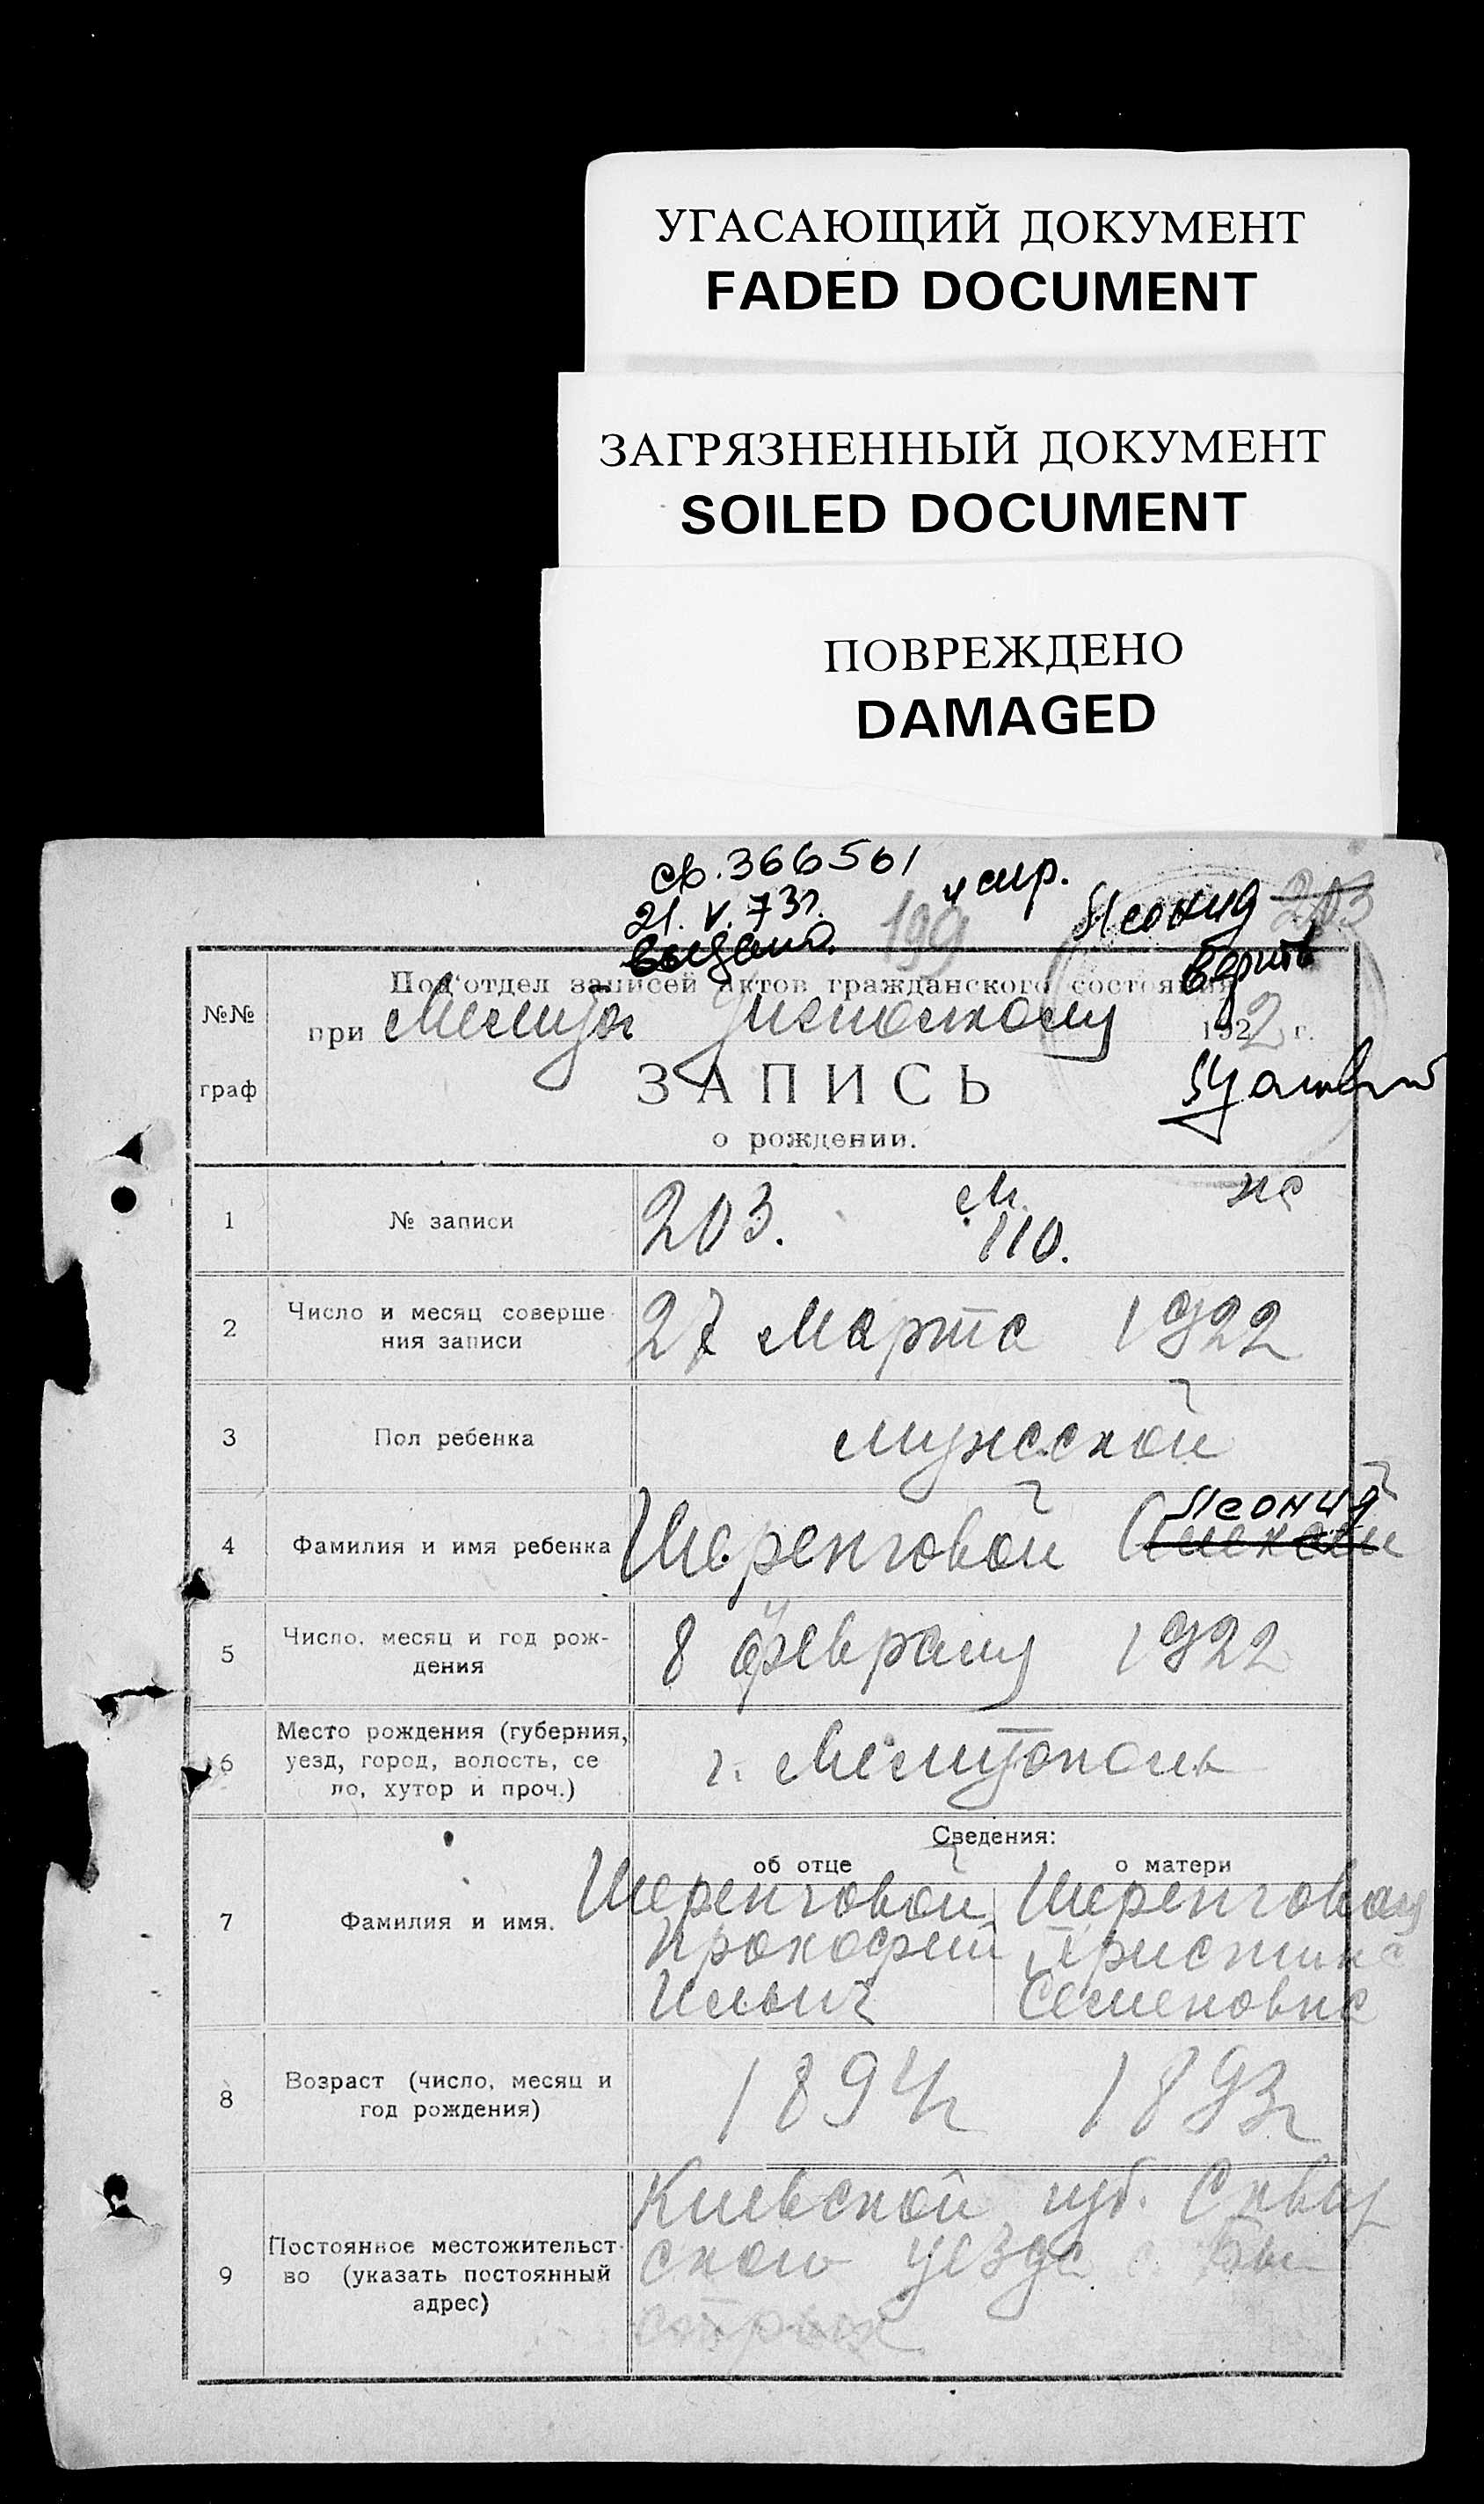 УГАСАЮЩИЙ ДОКУМЕНТ
FADED DOCUMENT
ЗАГРЯЗНЕННЫЙ ДОКУМЕНТ
SOILED DOCUMENT
ПОВРЕЖДЕНО
DAMAGED
св. 366561
21. V. 73г.
выдано.
199
испр.
Леонид
203
верить
Под'отдел записей актов гражданского состояния
№№
граф
при Мелитоп 1922 г.
ЗАПИСЬ
о рождении.
1 № записи 203. м. 110. нс
2 Число и месяц соверше
ния записи 27 Марта 1922
3 Пол ребенка мужской
Леонид
4 Фамилия и имя ребенка Шеренговой Алексей
5 Число, месяц и год рож-
дения 8 февраля 1922
6 Место рождения (губерния,
уезд, город, волость, се
ло, хутор и проч.) г. Мелитополь
Сведения:
об отце о матери
7 Фамилия и имя. Шеренговой Шеренговая
Прокофий Христина
Ильич Семеновна
8 Возраст (число, месяц и
год рождения) 1894г 1893г
9 Постоянное местожительст
во (указать постоянный
адрес) Киевской губ. Сквир
ского уезда с. Бы
стрык